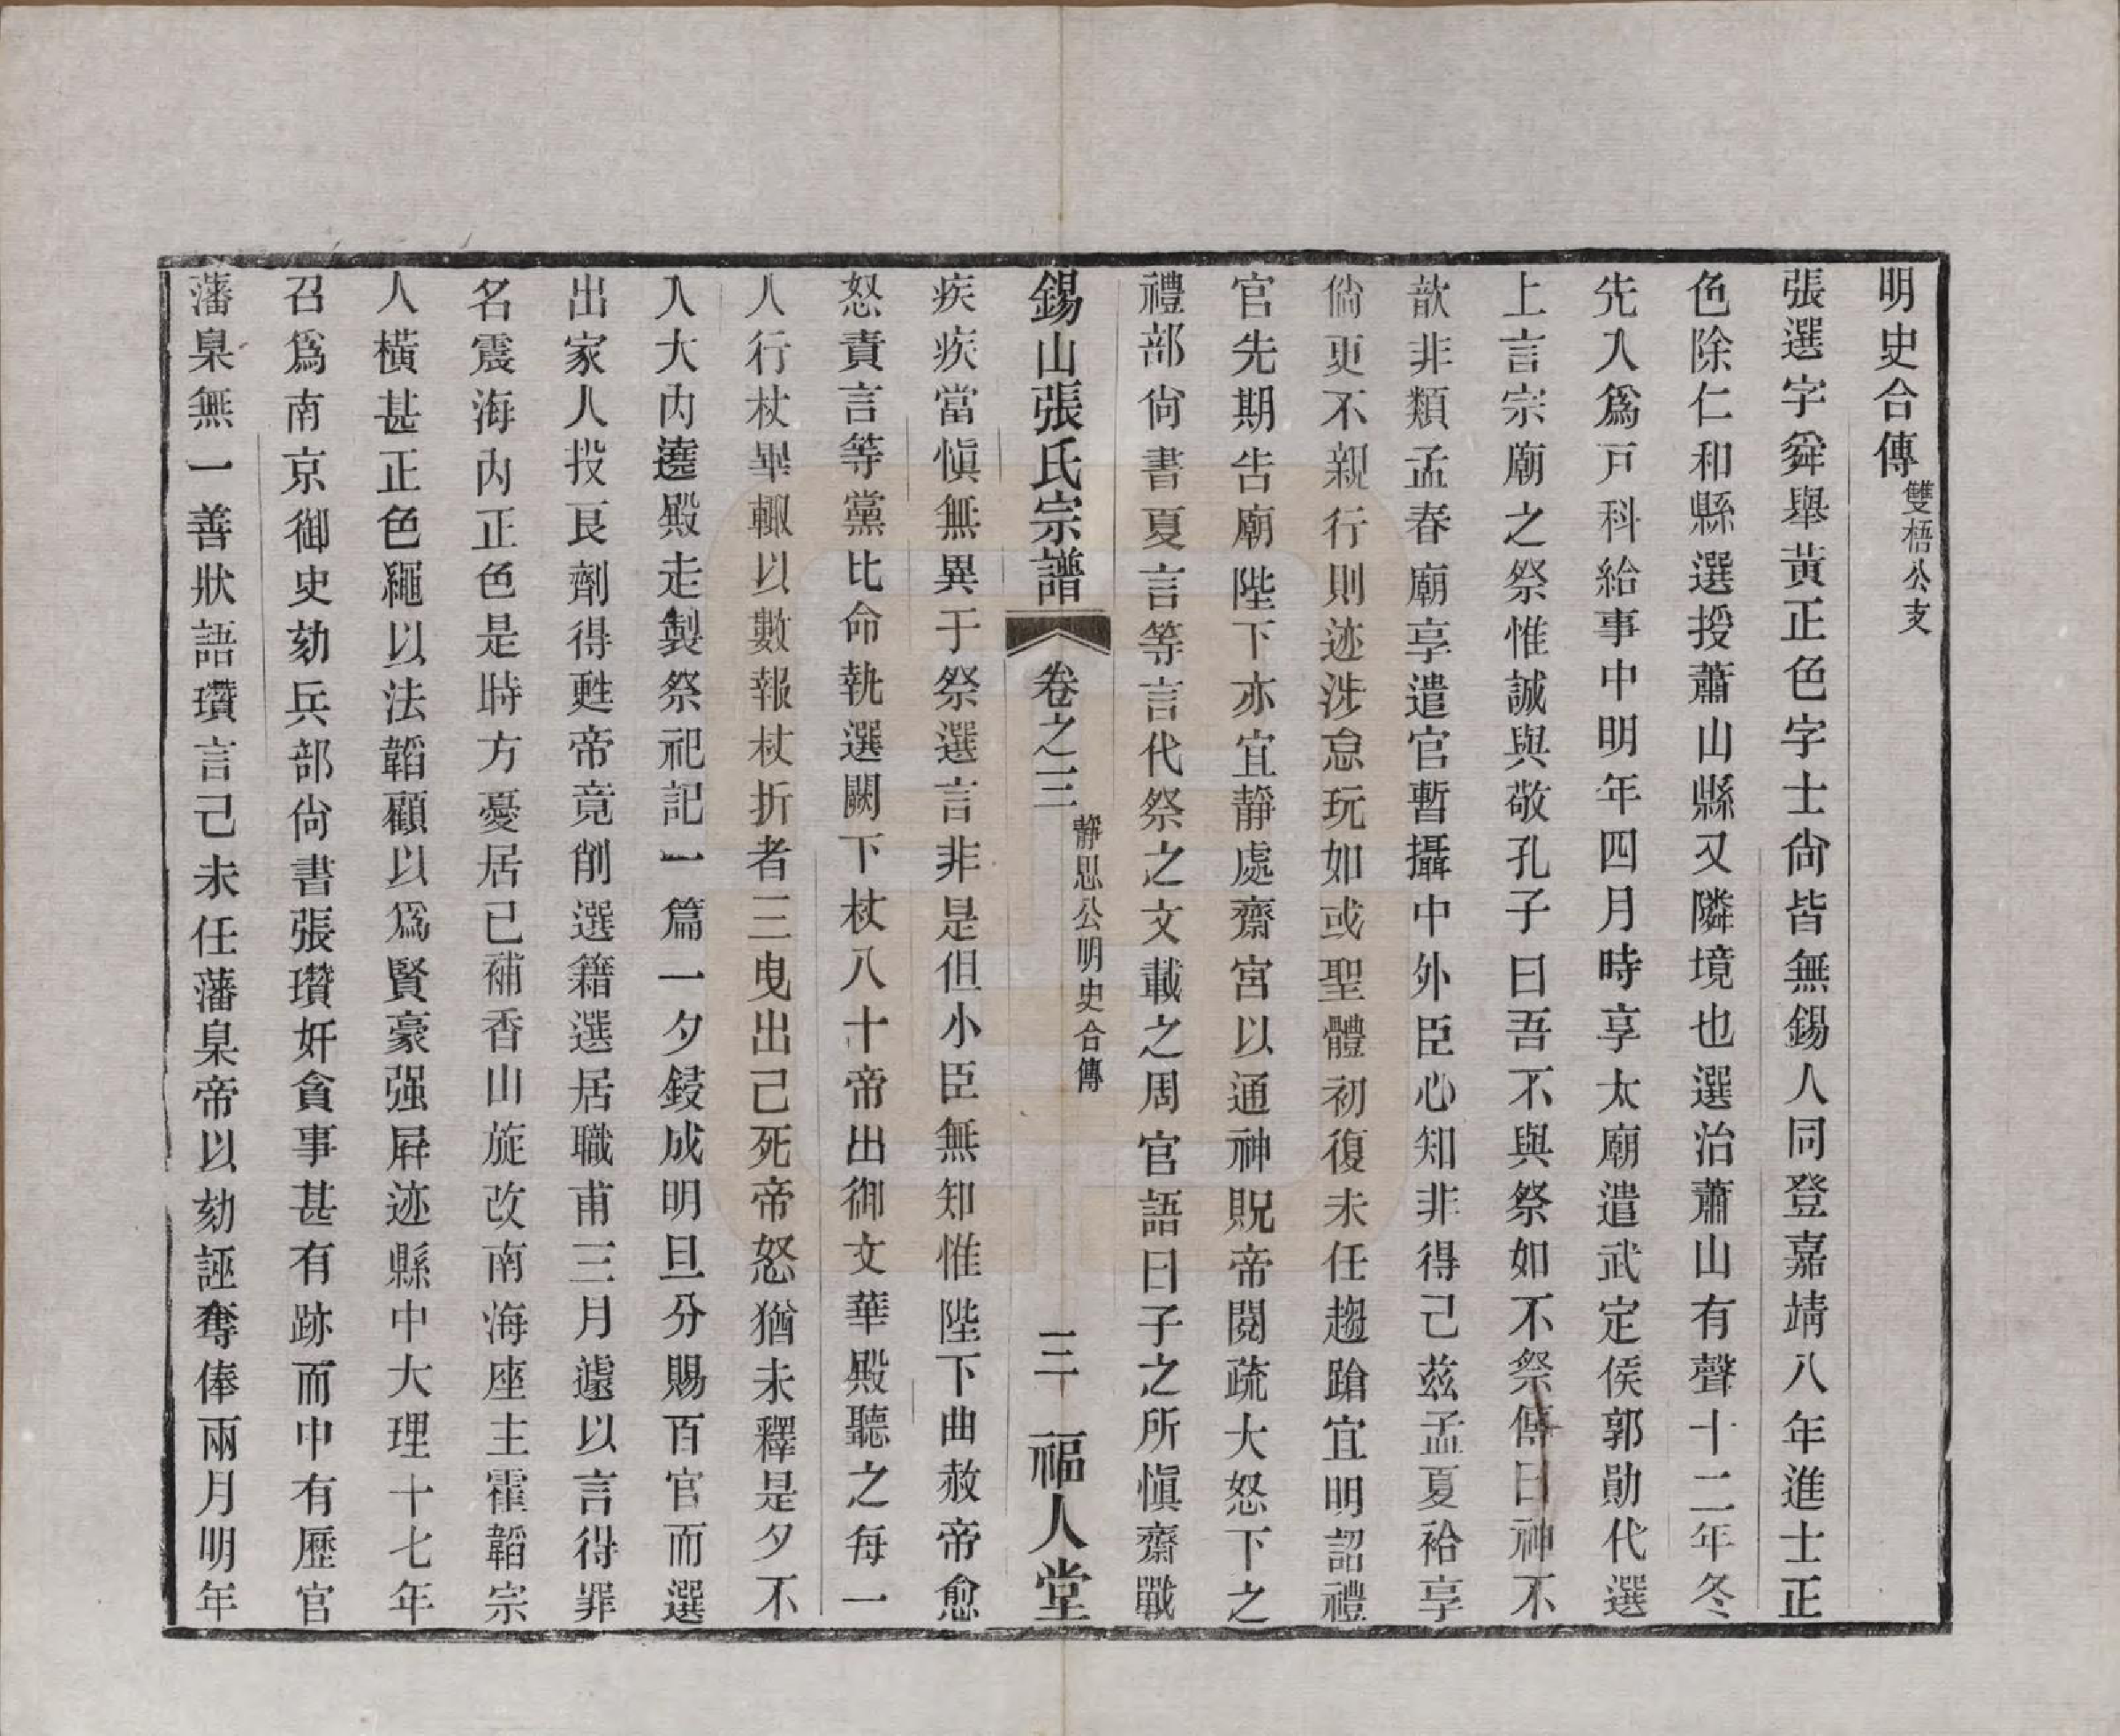 明史合傳雙梧公支
張選字舜舉黃正色字士尙皆無錫人同登嘉靖八年進士正
色除仁和縣選授蕭山縣又隣境也選治蕭山有聲十二年冬
先入爲戸科給事中明年四月時享太廟遣武定侯郭勛代選
上言宗廟之祭惟誠與敬孔子曰吾不與祭如不祭傳曰神不
歆非類孟春廟享遣官暫攝中外臣心知非得已茲孟夏祫享
倘更不親行則迹涉怠玩如或聖體初復未任趨蹌宜明詔禮
官先期告廟陛下亦宜靜處齋宮以通神貺帝閱疏大怒下之
禮部尙書夏言等言代祭之文載之周官語曰子之所慎齋戰
錫山張氏宗譜 卷之三 靜思公明史合傳 三 福人堂
疾疾當慎無異于祭選言非是但小臣無知惟陛下曲赦帝愈
怒責言等黨比命執選闕下杖八十帝出御文華殿聽之每一
人行杖畢輒以數報杖折者三曳出已死帝怒猶未釋是夕不
入大內遶殿走製祭祀記一篇一夕鋟成明旦分賜百官而選
出家人投良劑得甦帝竟削選籍選居職甫三月遽以言得罪
名震海內正色是時方憂居已補香山旋改南海座主霍韜宗
人橫甚正色繩以法韜顧以爲賢豪强屛迹縣中大理十七年
召爲南京御史劾兵部尙書張瓚奸貪事甚有跡而中有歷官
藩臬無一善狀語瓚言己未任藩臬帝以劾誣奪俸兩月明年